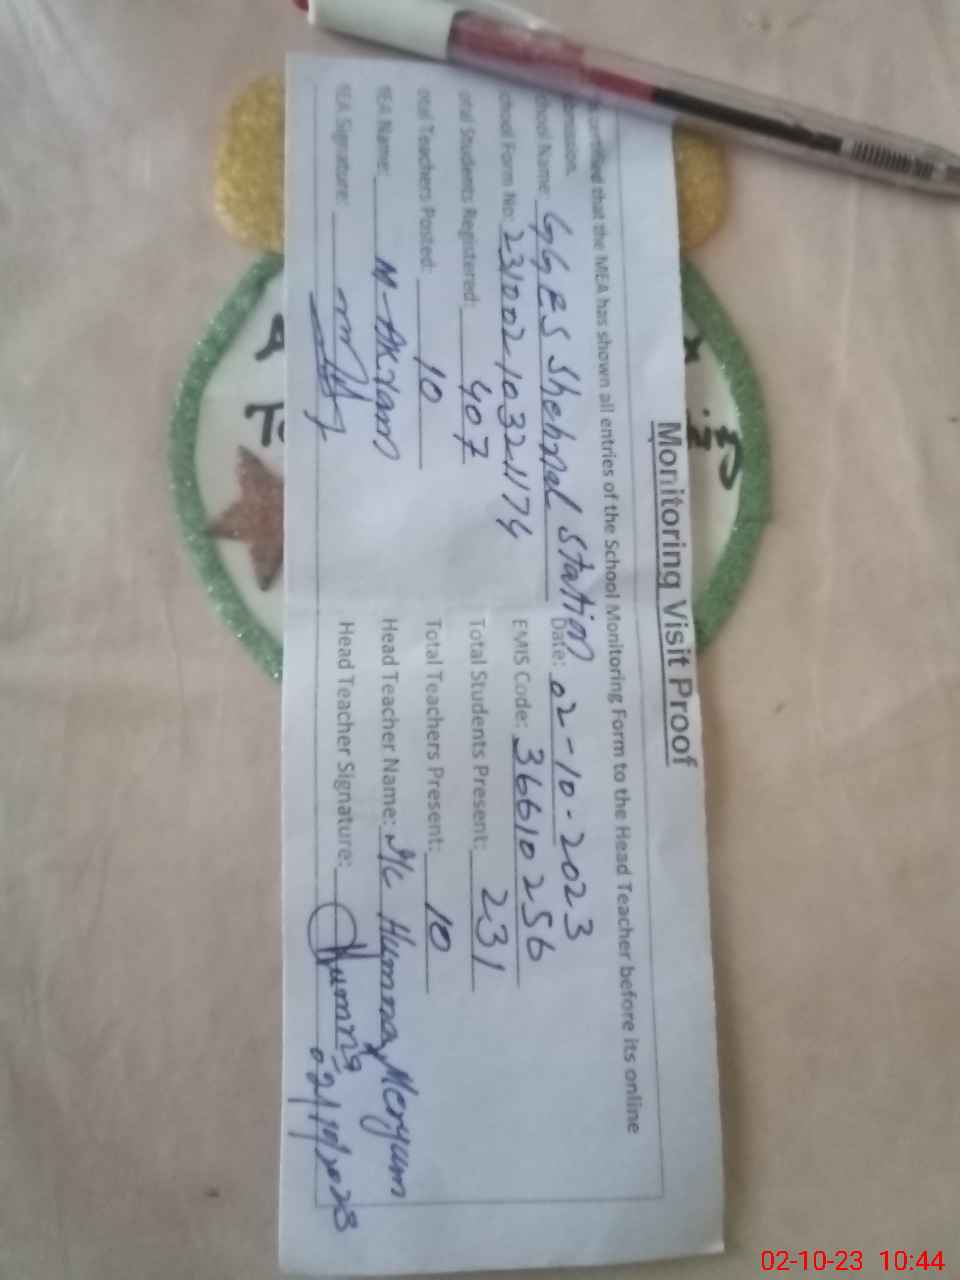 Monitoring Visit Proof
that the MEA has shown all entries of the School Monitoring Form to the Head Teacher before its online
School Name: GGES Shehnal Station Date: 02-10-2023
School Form No: 231002-1032-1174 EMIS Code: 36610256
Total Students Registered: 407 Total Students Present: 231
Total Teachers Posted: 10 Total Teachers Present: 10
MEA Name: M-Akram Head Teacher Name: I/c Humna Meryum
MEA Signature: Head Teacher Signature: Humna
02/10/2023
02-10-23 10:44